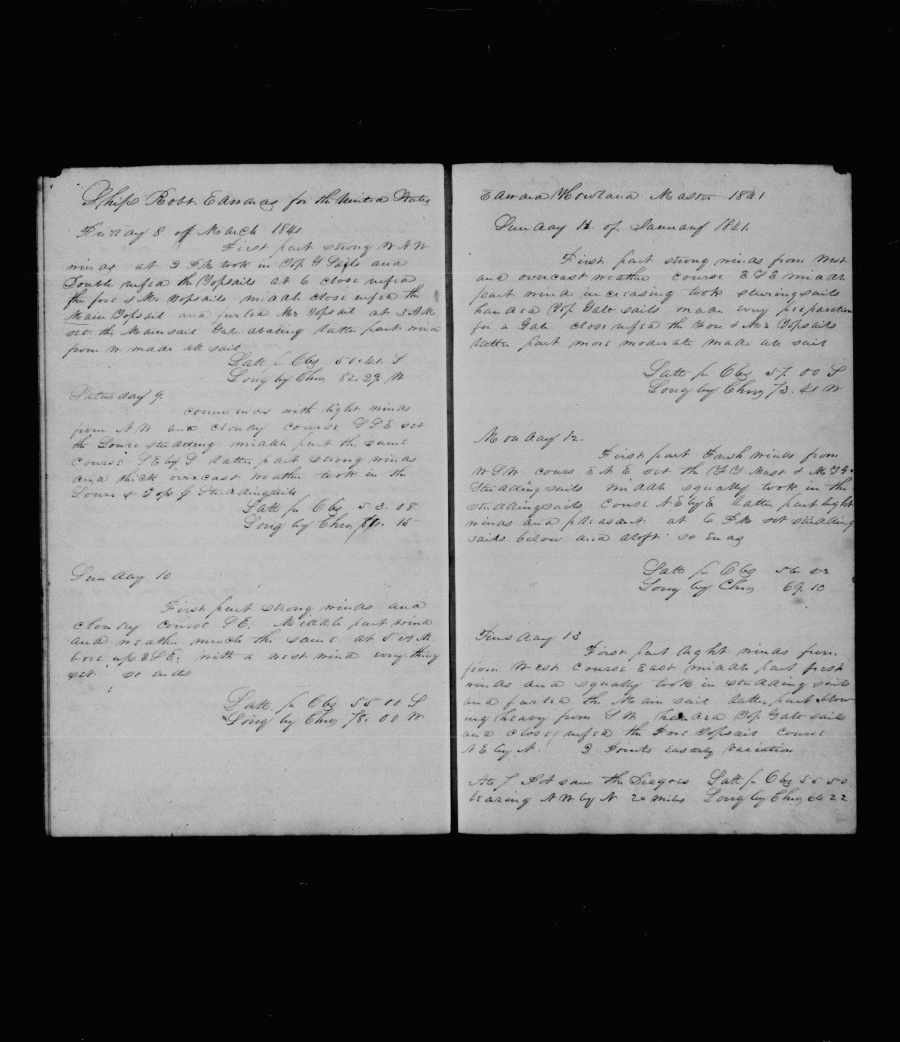 Ship Robt Edwards for the United States
Friday 8 of March 1841
First part strong W N W
winds at 3 P.M. took in Top G Sails and
Double reefed the Topsails at 6 close reefed
the fore & Miz Topsails middle close reefed the
Main Topsail and furled Miz Topsail at 3 A.M.
set the Mainsail Gale abating latter part wind
from W made all sail
Latt pr Obs 50.41. S
Long by Chro 82.29 W
Saturday 9
commences with light winds
from N.W and cloudy course S S E set
the Lower studding middle part the same
course S E by S latter part strong winds
and thick overcast weather took in the
Lower & Top G Studdingsails
Latt pr Obs 53.08
Long by Chro 81.15
Sunday 10
First part strong winds and
cloudy course S E. Middle part wind
and weather much the same at 5 A M
bore up E S E. with a west wind everything
set so ends
Latt pr Obs 55.10 S
Long by Chro 78.00 W
Edward Howland Master 1841
Sunday 11 of January 1841
First part strong winds from West
and overcast weather course E S E middle
part wind increasing took steering sails
handed Top Galt sails made every preparation
for a Gale close reefed the Fore & Miz Topsails
latter part more moderate made all sail
Latt pr Obs 57.00 S
Long by Chro 73.40 W
Monday 12.
First part Fresh winds from
W S W course E N E set the
Studdingsails middle squally took in the
studdingsails course N E by E latter part light
winds and pleasant at 6 P.M. set studding
sails below and aloft so ends
Latt pr Obs 56.52
Long by Chro 69.10
Tuesday 13
First part light winds from
from West course East middle part fresh
winds and squally took in studding sails
and furled the Main sail latter part blow
ing heavy from S W. handed Top Galt sails
and close reefed the Fore Topsail course
N E by N. 2 Points easterly Variation
At 7 saw the Diegoes Latt pr Obs 55.50
bearing N W by N 20 miles Long by Chro 66 22